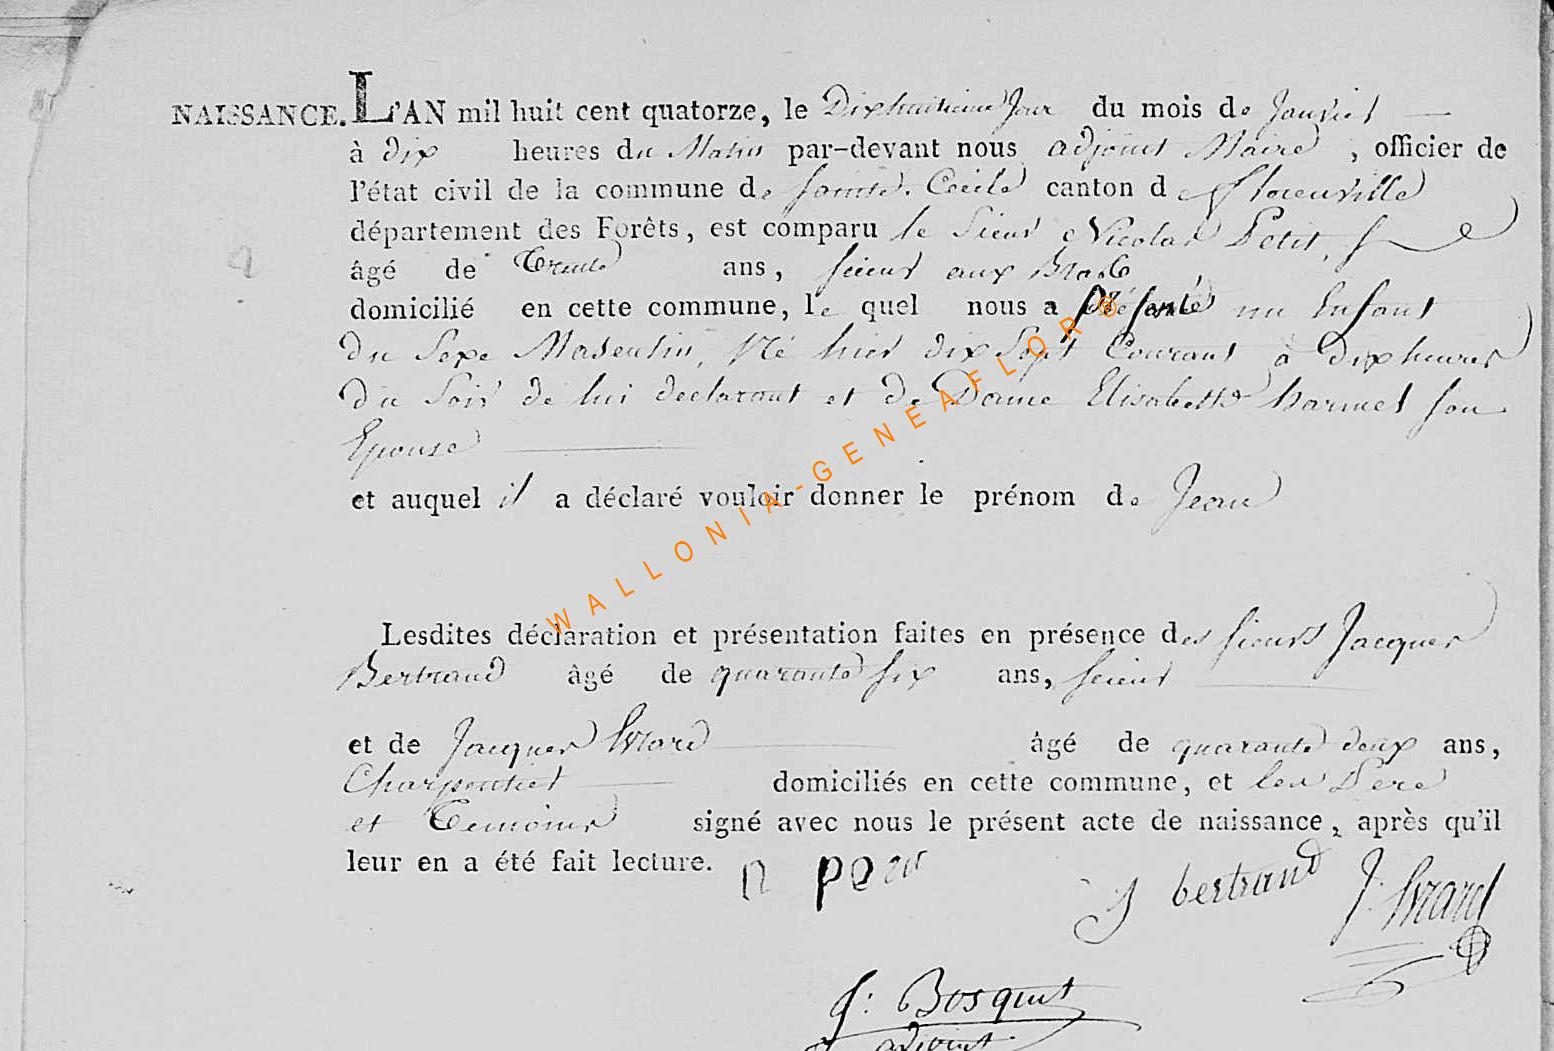 NAISSANCE. L'AN mil huit cent quatorze, le Dixhuitieme Jour du mois de Janvier
à dix heures du Matin par-devant nous adjoint Maire, officier de
l'état civil de la commune de Sainte. Cecile canton de Florenville
département des Forêts, est comparu le Sieur Nicolas Petit,
âgé de Trente ans, scieur aux
domicilié en cette commune, le quel nous a présenté un Enfant
du Sexe Masculin, Né hier dix Sept Courant à dix heures
du Soir de lui declarant et de Dame Elisabette harmel son
Epouse
et auquel il a déclaré vouloir donner le prénom de Jean
Lesdites déclaration et présentation faites en présence des sieurs Jacques
Bertrand âgé de quarante six ans, scieur
et de Jacques Evrard âgé de quarante deux ans,
Charpentier domiciliés en cette commune, et les Pere
et Temoins signé avec nous le présent acte de naissance, après qu'il
leur en a été fait lecture.
J bertrand J: Evrard
J: Bosquet
adjoint
WALLONIA-GENEAFLOR®